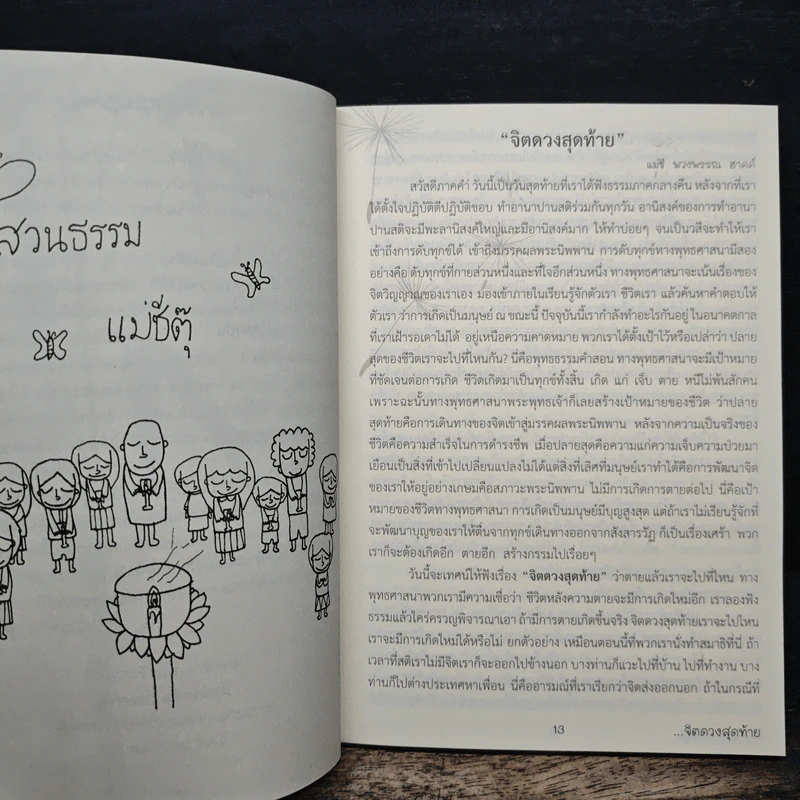 สวนธรรม
แม่ชีตุ๊
“จิตดวงสุดท้าย”
แม่ชี พวงพรรณ ฮาตต์
สวัสดีภาคค่ำ วันนี้เป็นวันสุดท้ายที่เราได้ฟังธรรมภาคกลางคืน หลังจากที่เรา
ได้ตั้งใจปฏิบัติดีปฏิบัติชอบ ทำอานาปานสติร่วมกันทุกวัน อานิสงค์ของการทำอานา
ปานสติจะมีพะลานิสงค์ใหญ่และมีอานิสงค์มาก ให้ทำบ่อยๆ จนเป็นวสีจะทำให้เรา
เข้าถึงการดับทุกข์ได้ เข้าถึงมรรคผลพระนิพพาน การดับทุกข์ทางพุทธศาสนามีสอง
อย่างคือ ดับทุกข์ที่กายส่วนหนึ่งและที่ใจอีกส่วนหนึ่ง ทางพุทธศาสนาจะเน้นเรื่องของ
จิตวิญญาณของเราเอง มองเข้าภายในเรียนรู้จักตัวเรา ชีวิตเรา แล้วค้นหาคำตอบให้
ตัวเรา ว่าการเกิดเป็นมนุษย์ ณ ขณะนี้ ปัจจุบันนี้เรากำลังทำอะไรกันอยู่ ในอนาคตกาล
ที่เราเฝ้ารอเดาไม่ได้ อยู่เหนือความคาดหมาย พวกเราได้ตั้งเป้าไว้หรือเปล่าว่า ปลาย
สุดของชีวิตเราจะไปที่ไหนกัน? นี่คือพุทธธรรมคำสอน ทางพุทธศาสนาจะมีเป้าหมาย
ที่ชัดเจนต่อการเกิด ชีวิตเกิดมาเป็นทุกข์ทั้งสิ้น เกิด แก่ เจ็บ ตาย หนีไม่พ้นสักคน
เพราะฉะนั้นทางพุทธศาสนาพระพุทธเจ้าก็เลยสร้างเป้าหมายของชีวิต ว่าปลาย
สุดท้ายคือการเดินทางของจิตเข้าสู่มรรคผลพระนิพพาน หลังจากความเป็นจริงของ
ชีวิตคือความสำเร็จในการดำรงชีพ เมื่อปลายสุดคือความแก่ความเจ็บความป่วยมา
เยือนเป็นสิ่งที่เข้าไปเปลี่ยนแปลงไม่ได้แต่สิ่งที่เลิศที่มนุษย์เราทำได้คือการพัฒนาจิต
ของเราให้อยู่อย่างเกษมคือสภาวะพระนิพพาน ไม่มีการเกิดการตายต่อไป นี่คือเป้า
หมายของชีวิตทางพุทธศาสนา การเกิดเป็นมนุษย์มีบุญสูงสุด แต่ถ้าเราไม่เรียนรู้จักที่
จะพัฒนาบุญของเราให้ตื่นจากทุกข์เดินทางออกจากสังสารวัฏ ก็เป็นเรื่องเศร้า พวก
เราก็จะต้องเกิดอีก ตายอีก สร้างกรรมไปเรื่อยๆ
วันนี้จะเทศน์ให้ฟังเรื่อง “จิตดวงสุดท้าย” ว่าตายแล้วเราจะไปที่ไหน ทาง
พุทธศาสนาพวกเรามีความเชื่อว่า ชีวิตหลังความตายจะมีการเกิดใหม่อีก เราลองฟัง
ธรรมแล้วใคร่ครวญพิจารณาเอา ถ้ามีการตายเกิดขึ้นจริง จิตดวงสุดท้ายเราจะไปไหน
เราจะมีการเกิดใหม่ได้หรือไม่ ยกตัวอย่าง เหมือนตอนนี้ที่พวกเรานั่งทำสมาธิที่นี่ ถ้า
เวลาที่สติเราไม่มีจิตเราก็จะออกไปข้างนอก บางท่านก็แวะไปที่บ้าน ไปที่ทำงาน บาง
ท่านก็ไปต่างประเทศหาเพื่อน นี่คืออารมณ์ที่เราเรียกว่าจิตส่งออกนอก ถ้าในกรณีที่
13
...จิตดวงสุดท้าย